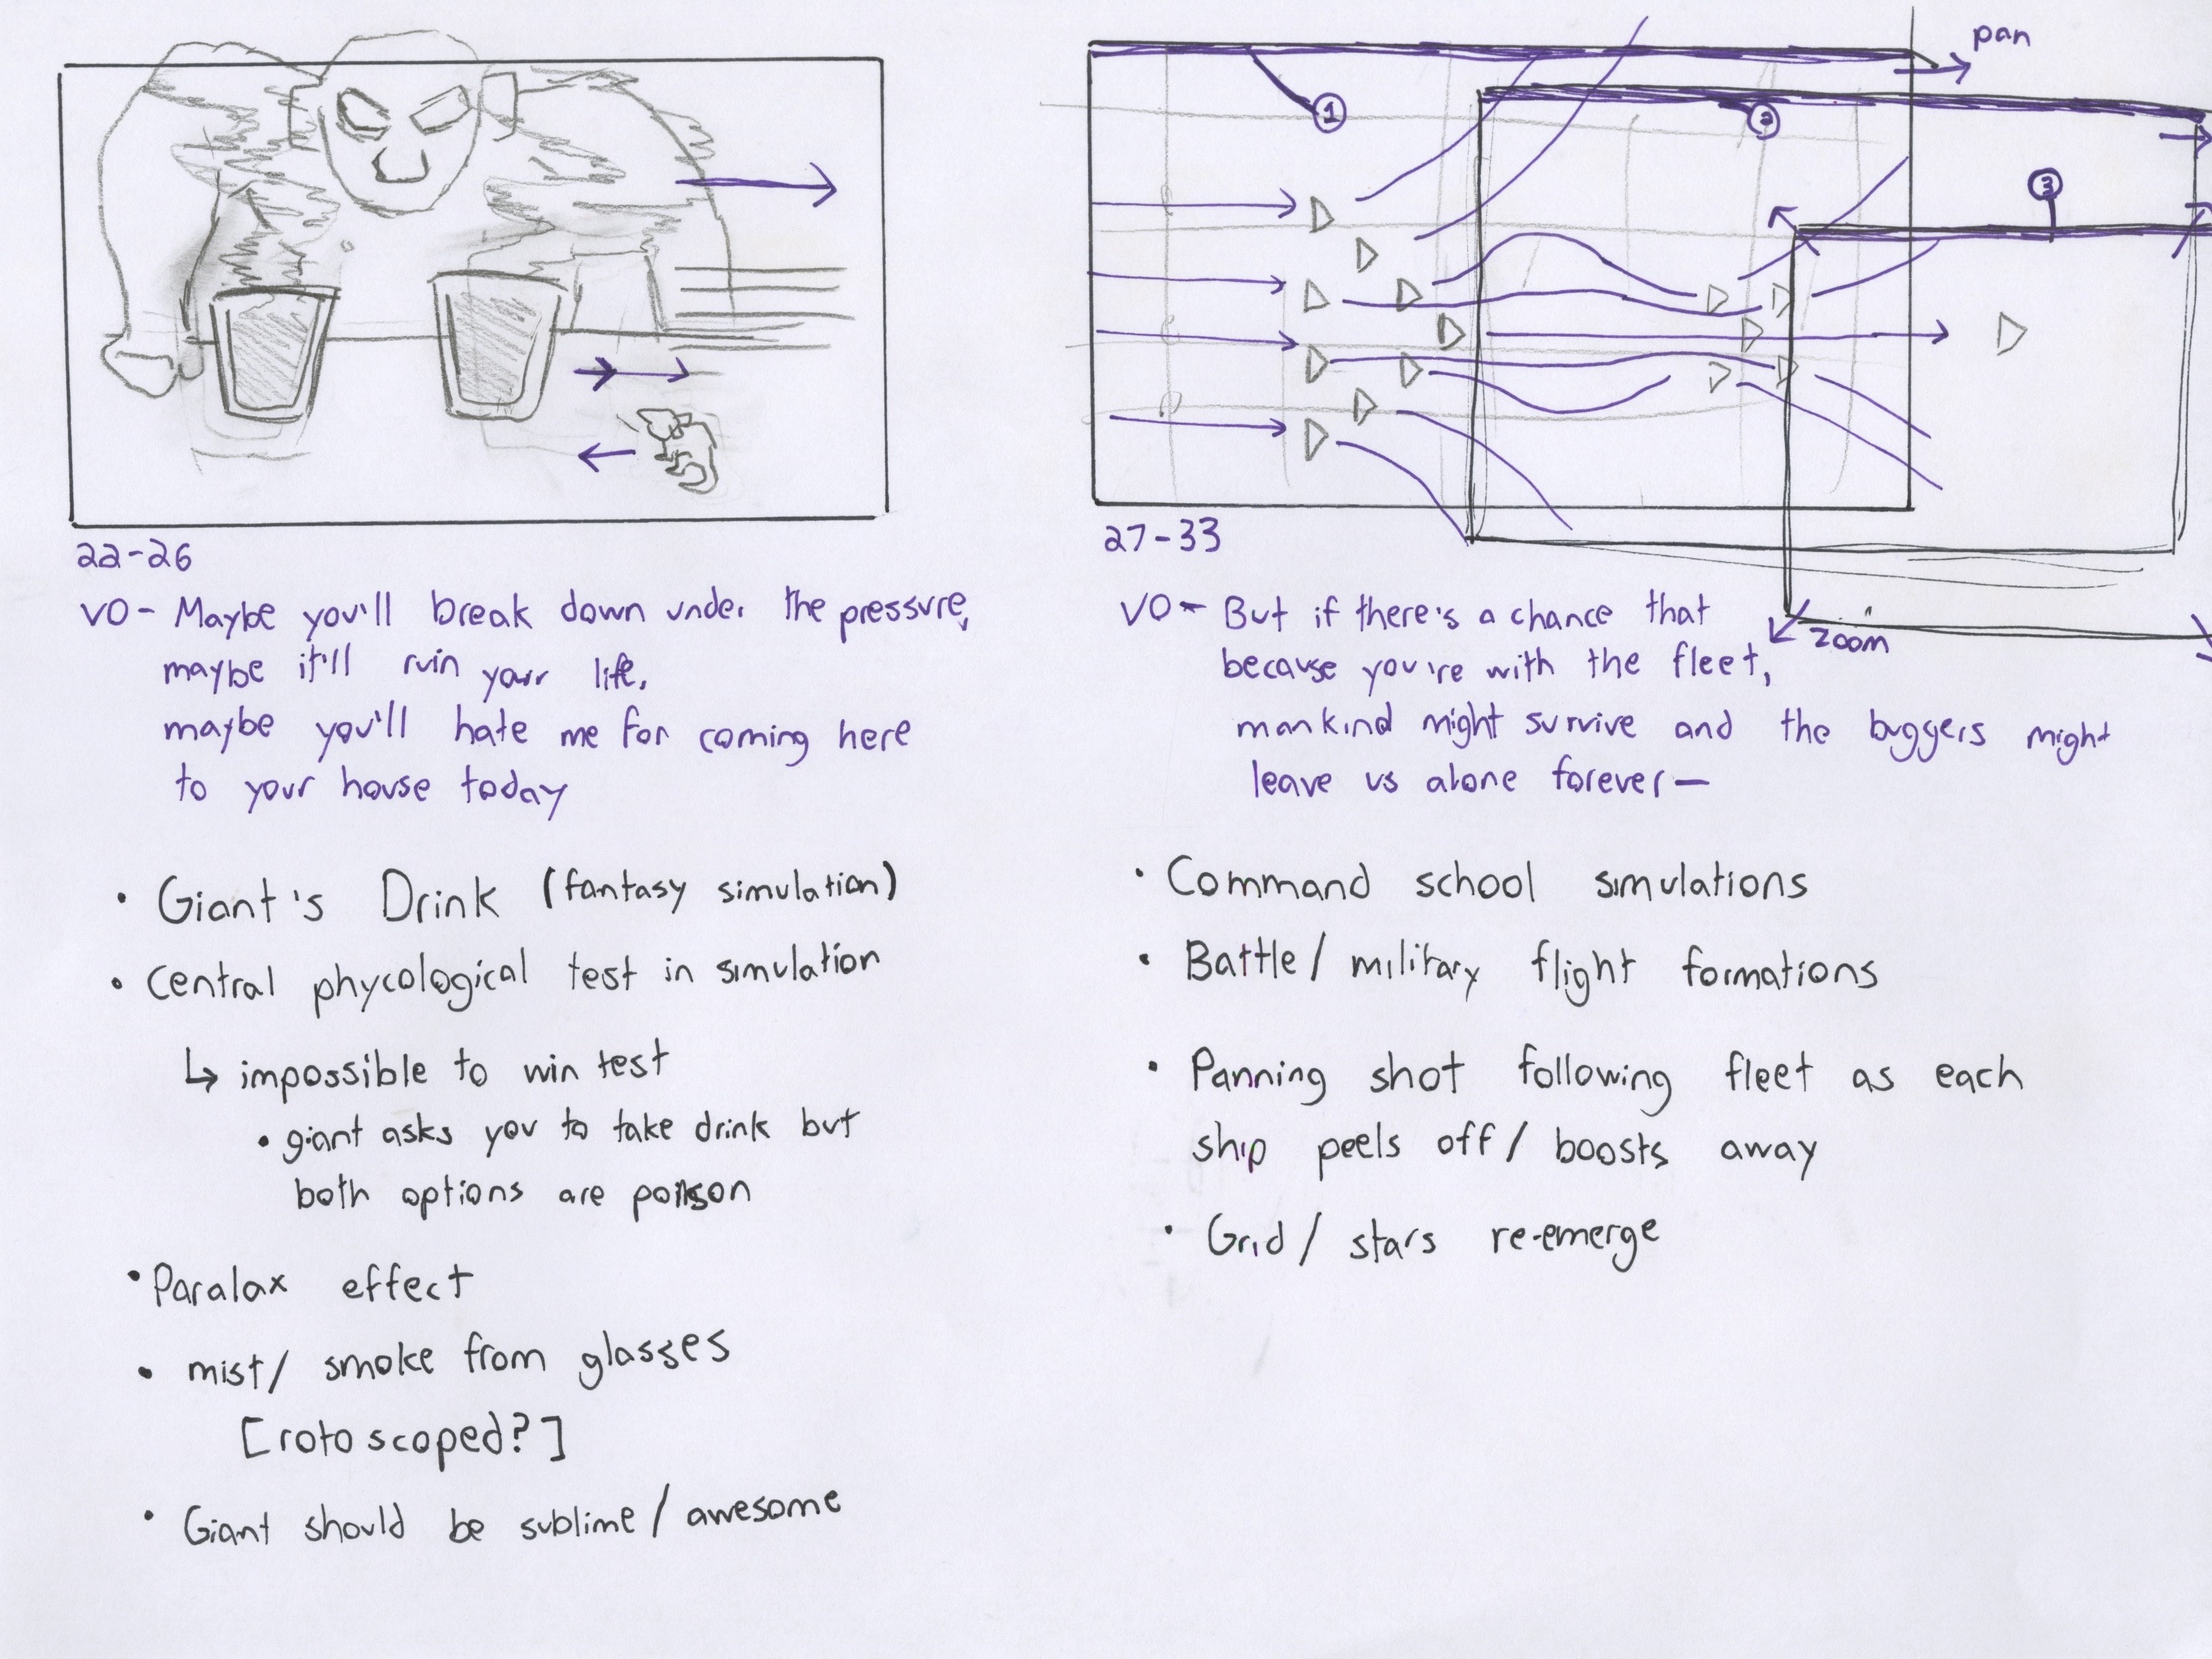 22-26
VO- Maybe you'll break down under the pressure,
maybe it'll ruin your life,
maybe you'll hate me for coming here
to your house today
• Giant's Drink (fantasy simulation)
• Central phycological test in simulation
↳ impossible to win test
• giant asks you to take drink but
both options are poison
• Paralax effect
• mist/ smoke from glasses
[rotoscoped?]
• Giant should be sublime/awesome
pan
1
2
3
27-33
zoom
VO- But if there's a chance that
because you're with the fleet,
mankind might survive and the buggers might
leave us alone forever—
• Command school simulations
• Battle/ military flight formations
• Panning shot following fleet as each
ship peels off/ boosts away
• Grid/ stars re-emerge